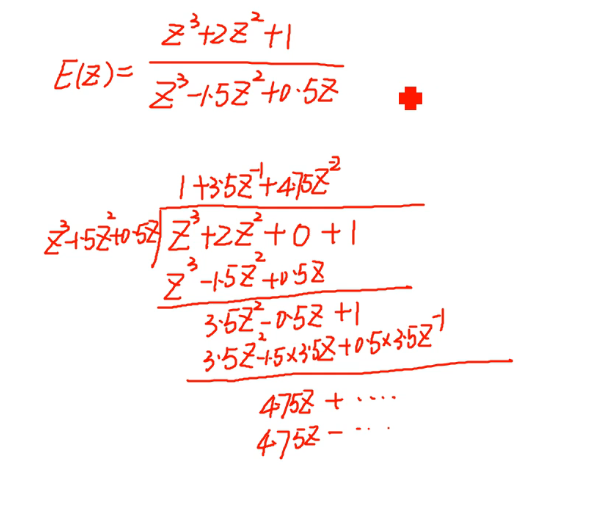 E(z) = (z³+2z²+1)/(z³-1.5z²+0.5z)
1+3.5z⁻¹+4.75z⁻²
z³-1.5z²+0.5z z³+2z²+0+1
z³-1.5z²+0.5z
3.5z²-0.5z+1
3.5z²-1.5×3.5z+0.5×3.5z⁻¹
4.75z+····
4.75z-····